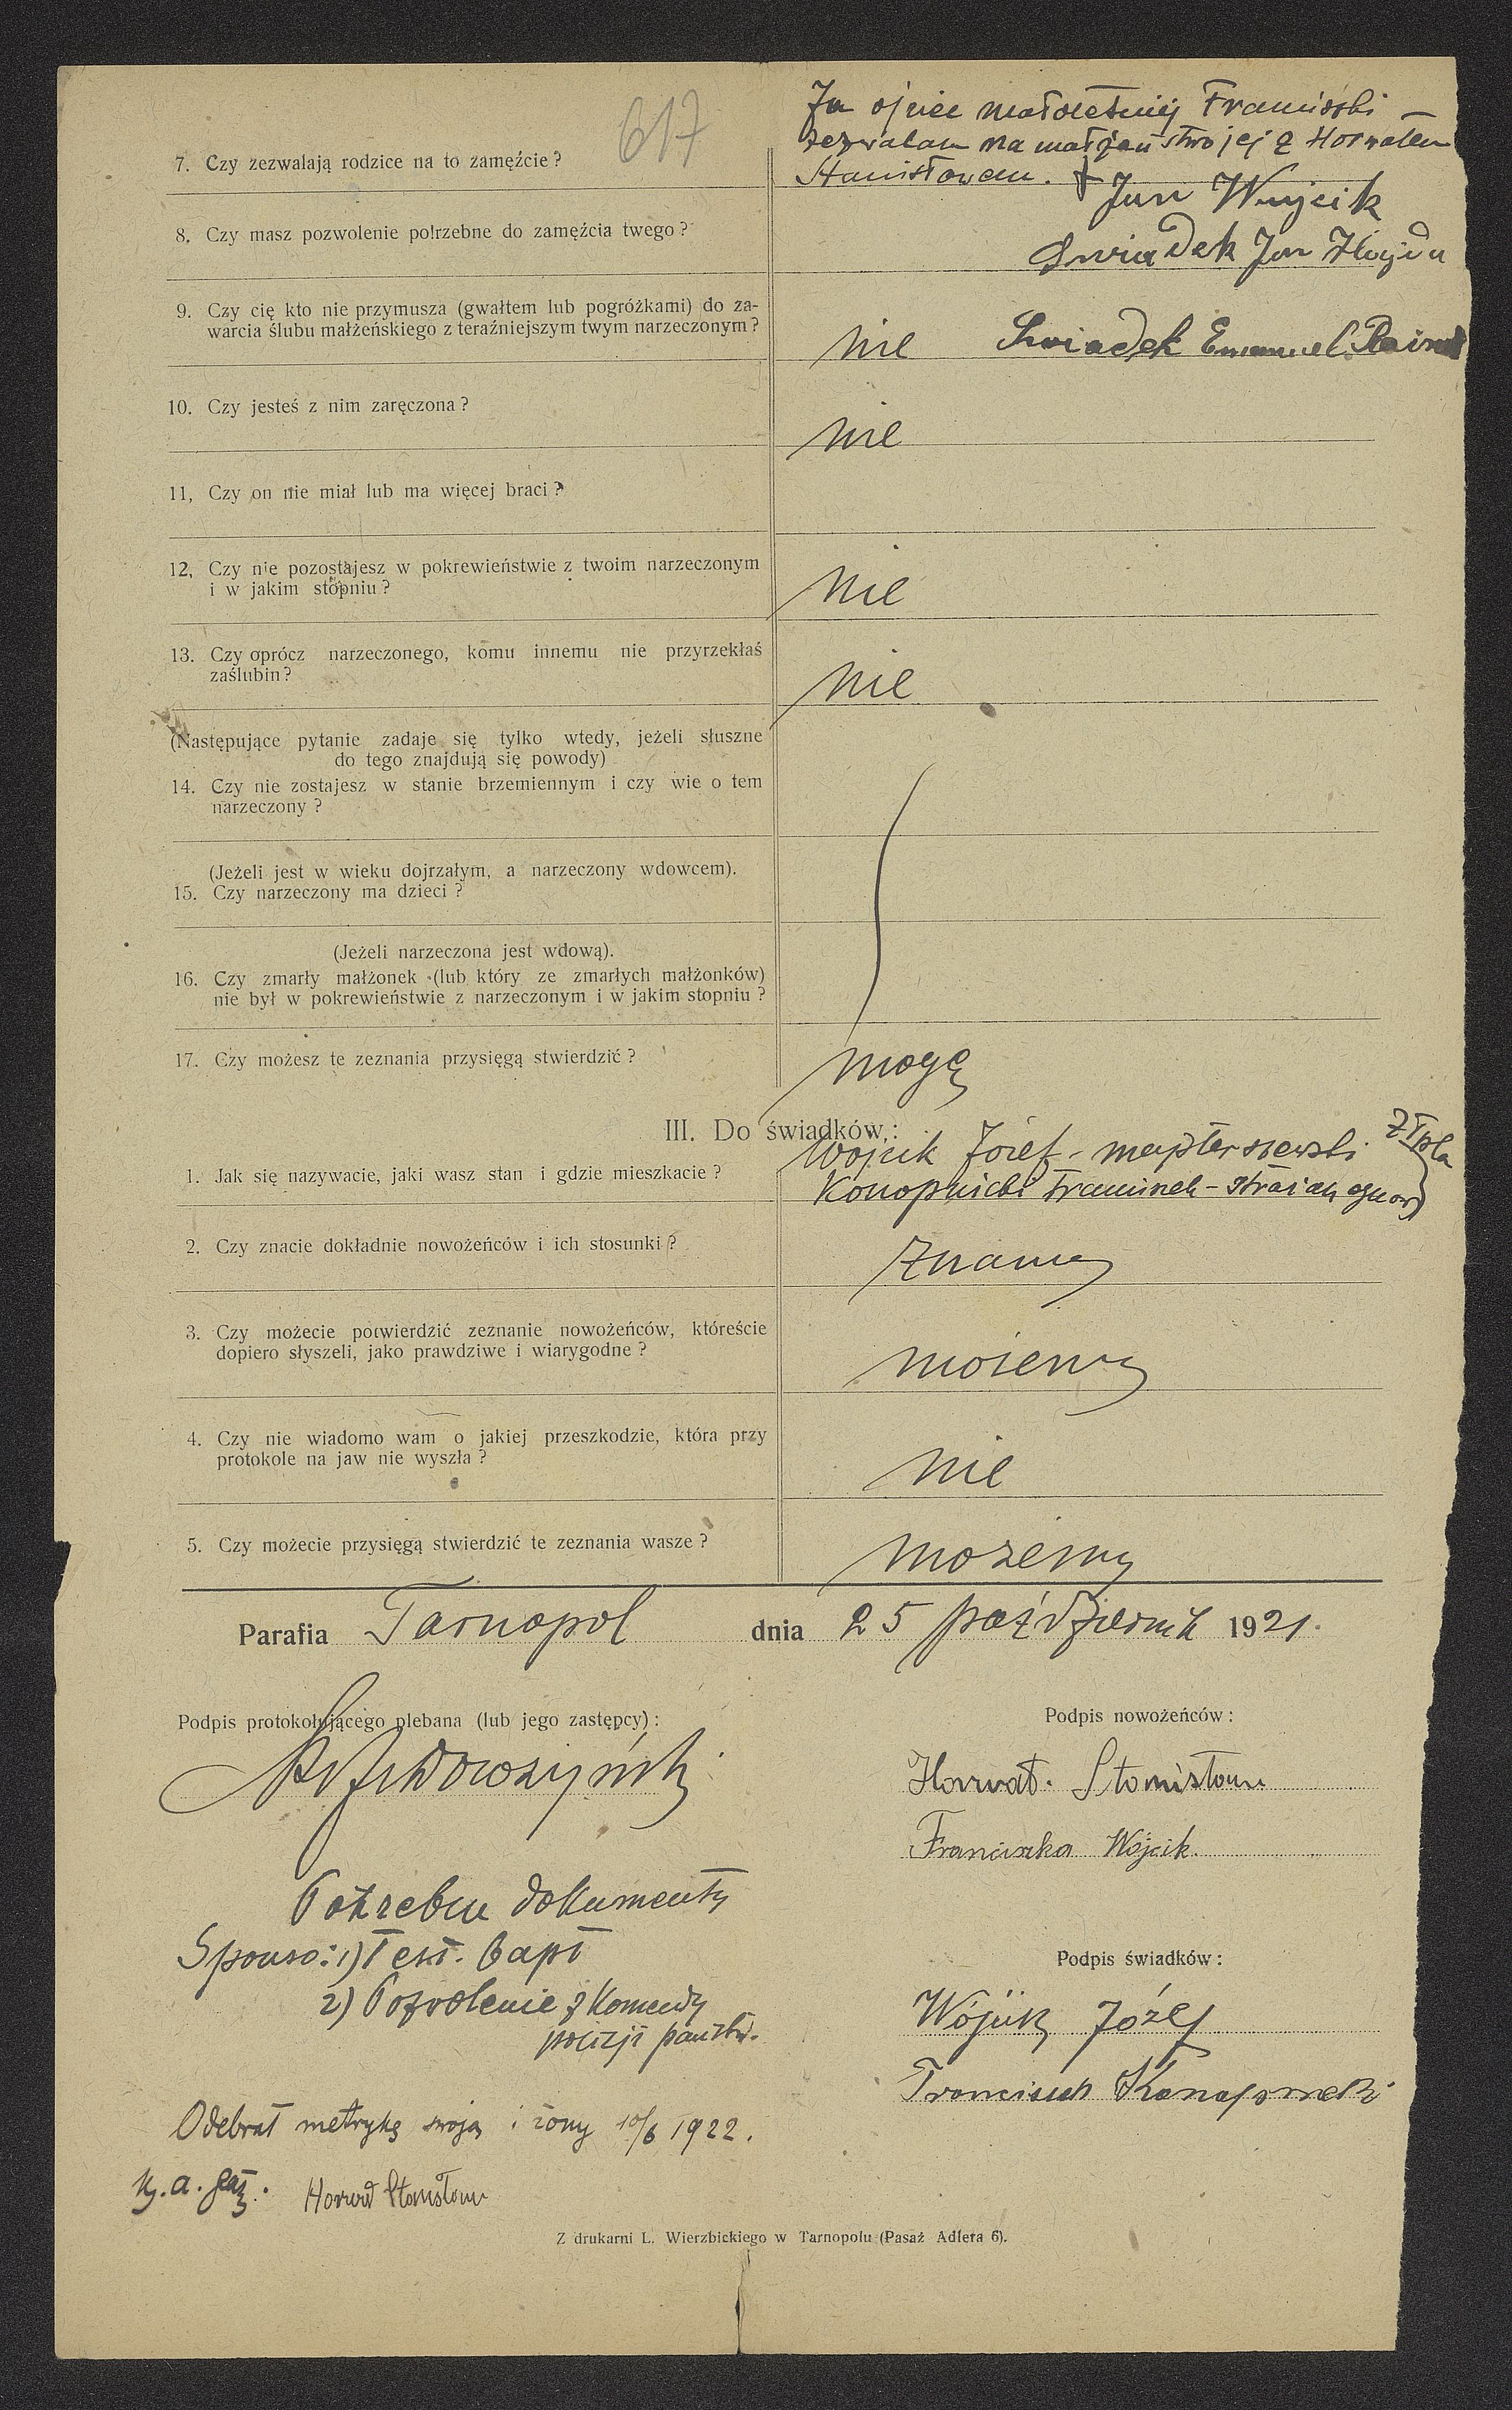 617
Ja ojciec małoletniej Franciszki
zezwalam na małżeństwo jej z Horwatem
Stanisławem. † Jan Wujcik
Swiadek Jan
Swiadek Emanuel
7. Czy zezwalają rodzice na to zamęźcie?
8. Czy masz pozwolenie potrzebne do zamęźcia twego?
9. Czy cię kto nie przymusza (gwałtem lub pogróżkami) do za-
warcia ślubu małżeńskiego z teraźniejszym twym narzeczonym?
nie
10. Czy jesteś z nim zaręczona?
nie
11, Czy on nie miał lub ma więcej braci?
12, Czy nie pozostajesz w pokrewieństwie z twoim narzeczonym
i w jakim stopniu?
nie
13. Czy oprócz narzeczonego, komu innemu nie przyrzekłaś
zaślubin?
nie
(Następujące pytanie zadaje się tylko wtedy, jeżeli słuszne
do tego znajdują się powody)
14. Czy nie zostajesz w stanie brzemiennym i czy wie o tem
narzeczony?
(Jeżeli jest w wieku dojrzałym, a narzeczony wdowcem).
15. Czy narzeczony ma dzieci?
(Jeżeli narzeczona jest wdową).
16. Czy zmarły małżonek (lub który ze zmarłych małżonków)
nie był w pokrewieństwie z narzeczonym i w jakim stopniu?
17. Czy możesz te zeznania przysięgą stwierdzić?
mogę
III. Do świadków:
1. Jak się nazywacie, jaki wasz stan i gdzie mieszkacie?
Wojcik Józef - majster szewski
Konopnicki Franciszek - strażak ogniow
z Tpla
2. Czy znacie dokładnie nowożeńców i ich stosunki?
znamy
3. Czy możecie potwierdzić zeznanie nowożeńców, któreście
dopiero słyszeli, jako prawdziwe i wiarygodne?
możemy
4. Czy nie wiadomo wam o jakiej przeszkodzie, która przy
protokole na jaw nie wyszła?
nie
5. Czy możecie przysięgą stwierdzić te zeznania wasze?
możemy
Parafia Tarnopol dnia 25 październik 1921.
Podpis protokołującego plebana (lub jego zastępcy):
Podpis nowożeńców:
Horwat. Stanisław
Franciszka Wójcik.
Potrzebne dokumenty
Sponso: 1) Test. Bapt
2) Pozwolenie z Komendy
policji państw.
Podpis świadków:
Wójcik Józef
Franciszek Konopnicki
Odebrał metrykę swoją i żony 10/6 1922.
Horwat Stanisław
Z drukarni L. Wierzbickiego w Tarnopolu (Pasaż Adlera 6).